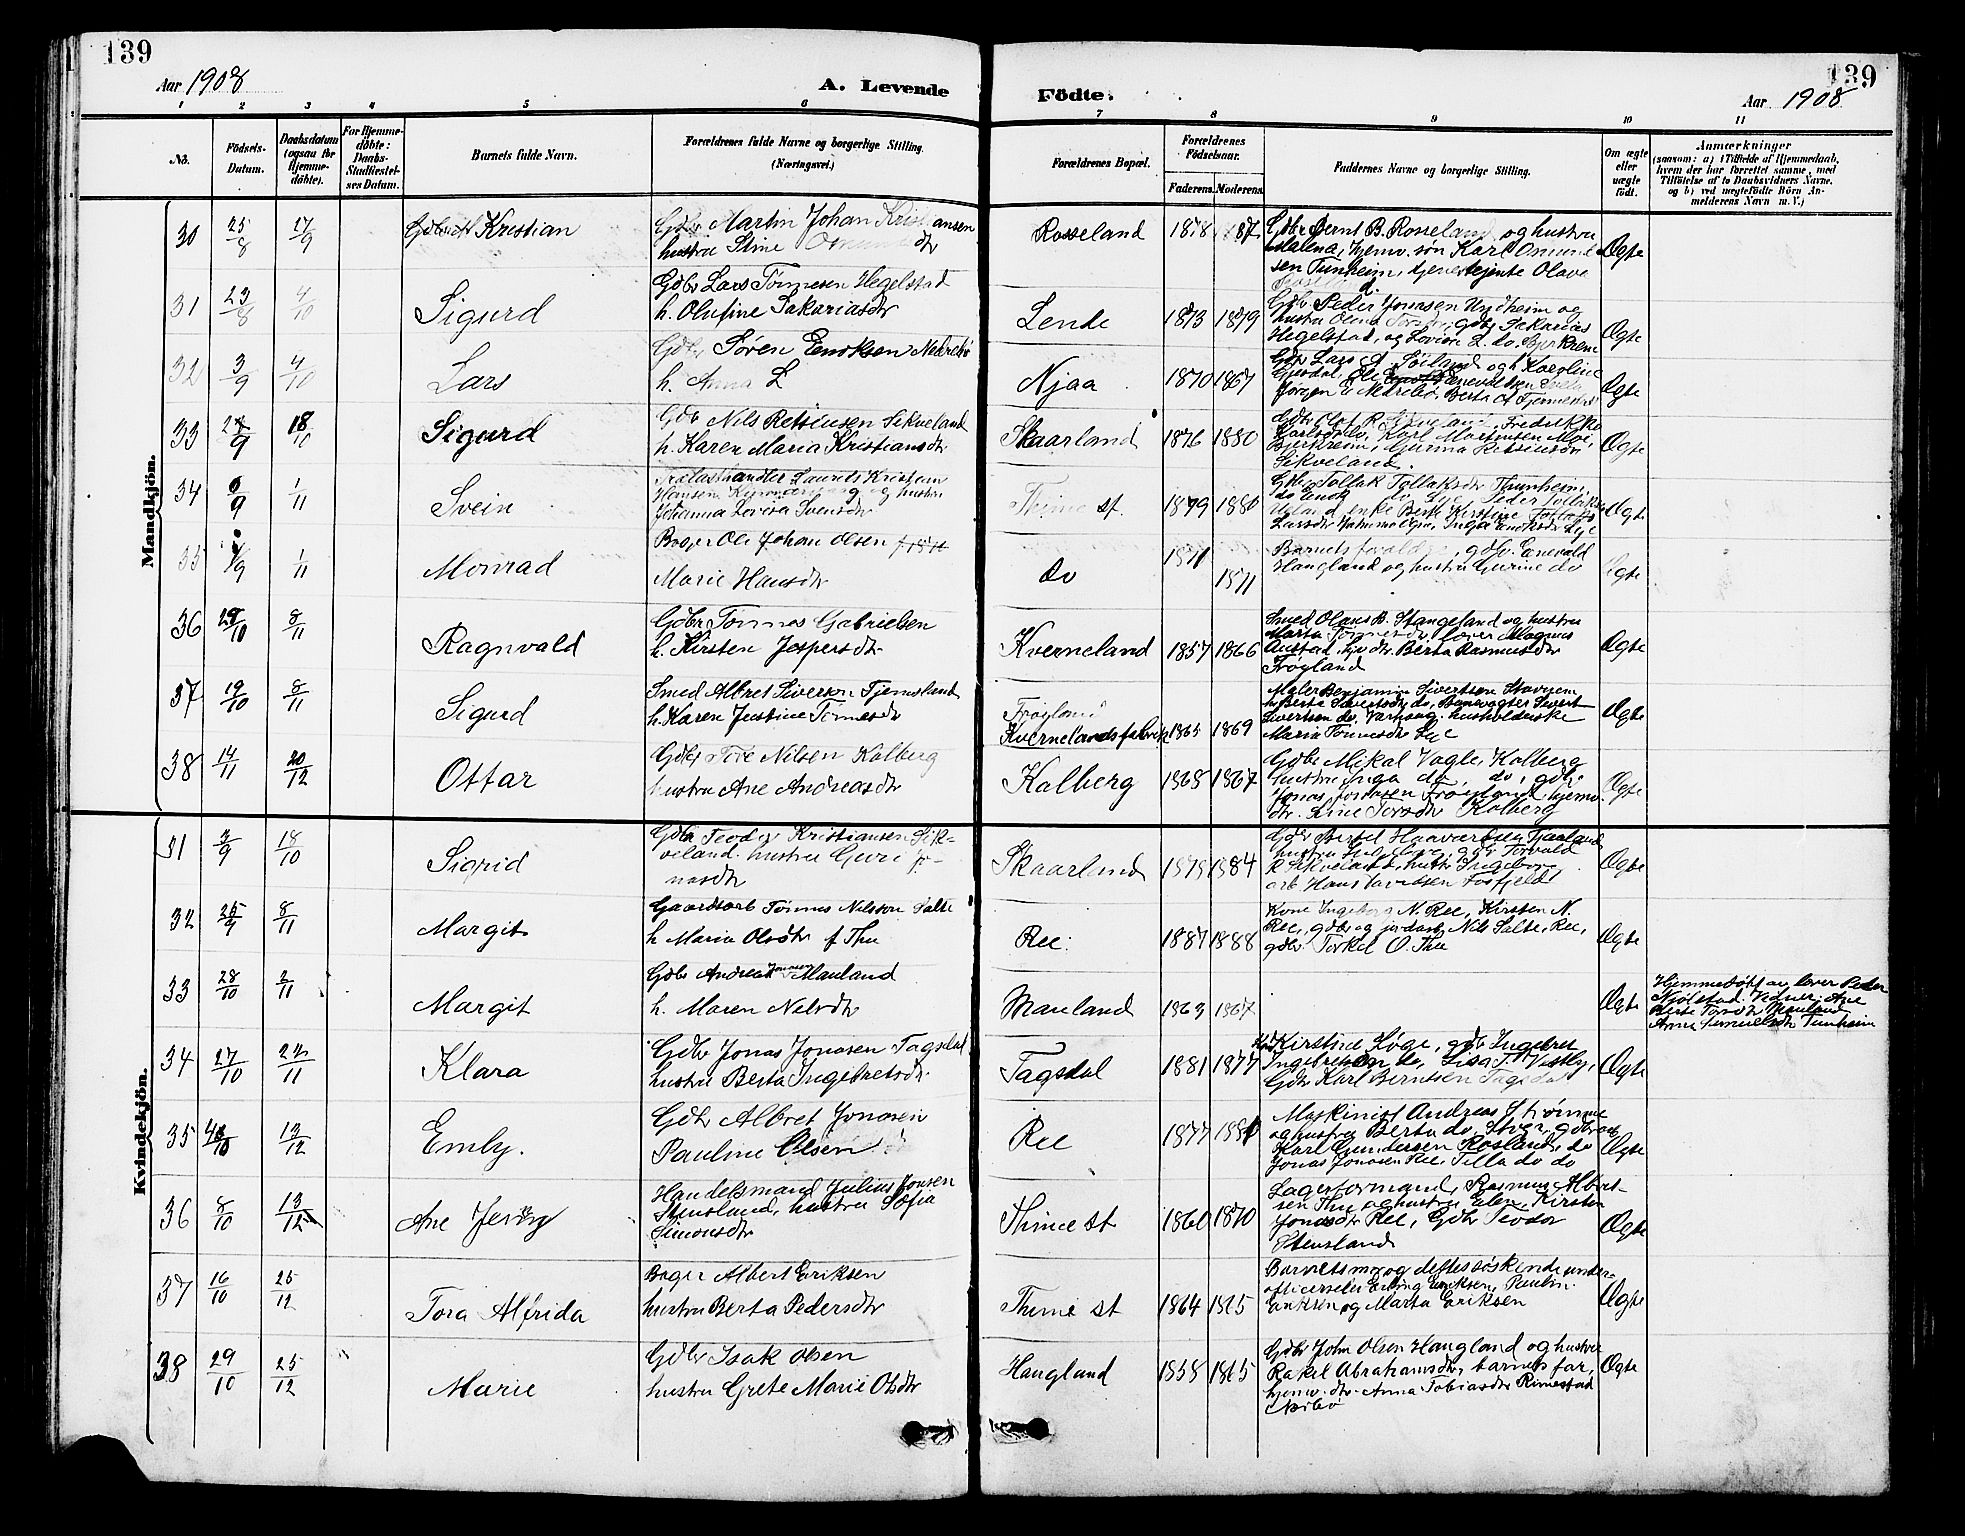 139
Aar 1908
A. Levende
Födte.
139
Aar 1908
1 2 3 4 5 6 7 8 9 10 11
No.
Födsels-Datum.
Daabsdatum (ogsaa for Hjemme-döbte).
For Hjemme-döbte: Daabs-Stadfæstel-ses Datum.
Barnets fulde Navn.
Forældrenes fulde Navne og borgerlige Stilling. (Næringsvei.)
Forældrenes Bopæl.
Forældrenes Födselsaar.
Faderens. Moderens.
Faddernes Navne og borgerlige Stilling.
Om ægte eller uægte födt.
Anmærkninger
(saasom: a) i Tilfælde af Hjemmedaab,
hvem der har forrettet samme, med
Tilföielse af to Daabsvidners Navne,
og b) ved uægtefödte Börn An-
melderens Navn m. V.)
Mandkjön.
30 25/8 27/9 Kristian
Gdbr Martin Johan Kristiansen
hustru Stine
Rosseland 1878
Gdbr Bernt B. Rosseland og hustru
Malena, hjemv. søn Karl Osmund
sen Tunheim, tjenestejente Olave
Ægte
31 23/8 4/10 Sigurd
Gdbr Lars Tönnesen Hegelstad
h. Olufine Sakariasdtr
Lende 1873 1879
Gdbr Peder Jonasen Undheim og
hustru Olina gdbr Sakarias
Hegelstad, og Lovise L. do. Bjerkreim
Ægte
32 3/9 4/10 Lars
Gdbr Sören Enoksen Nedrebö
h. Anna L
Njaa 1870 1867
Gdbr Lars Karoline
Gjesdal,
Jörgen E. Nedrebö, Berta
Ægte
33 18/10 Sigurd
Gdbr Nils Retsiusen Sikveland
h. Karen Maria Kristiansdtr
Skaarland 1876 1880
Gdbr Olaf R. Sikveland, Fredrikke
Karlsdtr do, Karl Mortensen Moi,
Bjerkreim, Gurina Retsiusdtr
Sikveland.
Ægte
34 6/9 1/11 Svein
Trælasthandler Laurits Kristian
Hansen og hustru
Johanna Lovisa Svensdtr
Thime st. 1879 1880
Gdbr Tollak Tollaksdtr Thunheim,
do Enok do Lye, Peder Tollaksen
enke Berte Kirstine Tollaks
Inga Enoksdtr Lye
Ægte
35 1/11 Monrad
Bager Ole Johan Olsen
Marie Hansdtr
do 1871 1871
Barnets foreldre, gdbr. Enevald
Haugland og hustru Gurine do
Ægte
36 8/11 Ragnvald
Gdbr Tönnes Gabrielsen
h. Kirsten Jespersdtr
Kverneland 1857 1866
Smed Olaus B. Stangeland og hustru
Marta Tönnesdtr, lærer Magnus
Austad, hjv dtr. Berta Rasmusdtr
Fröyland
Ægte
37 19/10 8/11 Sigurd
Smed Albret Siversen Tjemsland
h. Karen Justine Tönnesdtr
Fröyland
Kvernelandsfabrik 1865 1869
Maler Benjamin Sivertsen Stavgem
h Berta Sivertsdtr do, Banevogter Sivert
Sivertsen do. Varhaug, husholderske
Maria Tönnesdtr Lye
Ægte
38 14/11 20/12 Ottar
Gdbr Tore Nilsen Kalberg
hustru Ane Andreasdtr
Kalberg 1868 1867
Gdbr Mikal Vagle, Kalberg
hustru Inga do, do, gdbr
Jonas Jonasen Fröyland, hjemv.
dtr. Sine Toresdtr Kalberg
Ægte
Kvindekjön.
31 3/9 18/10 Sigrid
Gdbr Teodor Kristiansen Sik-
veland. hustru Guri Jo-
nasdtr
Skaarland 1879 1884
Gdbr Bertel Haavarsen Tjaaland
hustru gdbr Torvald
R Sikveland, hustr Ingeborg
arb. Hans Tavidsen Fosfjeldt
Ægte
32 25/9 8/11 Margit
Gaardsarb Tönnes Nilsson Salte
h Maria Olsdtr f Thu
Ree. 1887 1888
Kone Ingeborg N. Ree, Kirsten N.
Ree, gdbr og jordarb. Nils Salte, Ree,
gdbr Torkel O. Thu
Ægte
33 28/10 2/11 Margit
Gdbr Andreas Jonasen Mauland
h. Maren Nelsdtr
Mauland 1863 1867
Ægte
Hjemmedöbt av lærer Peder
Njölstad. Vidner: Ane
Berte Toresdtr Mauland
Anna Samuelsdtr Tunheim
34 27/10 22/11 Klara
Gdbr Jonas Jonasen Tagsdal
hustru Berta Ingebretsdtr.
Tagsdal 1881 1877
Kirstine Høge, gdbr Ingebret
Ingebretsen do, Lisa T. Vestly,
Gdbr Karl Berntsen Tagsdal
Ægte
35 13/12 Emly.
Gdbr Albret Jonasen
Pauline Olsen
Ree 1877 1881
Maskinist Andreas Strömme
og hustru Berta do, Stvgr, gdbr
Karl Gundersen Rosland, do
Jonas Jonasen Ree, Tilla do do
Ægte
36 8/10 13/12 Ane Jenny
Handelsmand Julius Jonsen
Stensland, hustru Sofia
Simonsdtr
Thime st 1860 1870
Lagerformand, Rasmus Albert-
sen Thu og hustru Elen, Kirsten
Jonasdtr Ree, Gdbr Teodor
Stensland
Ægte
37 16/10 25/12 Tora Alfrida
Bager Albert Eriksen
hustru Berta Pedersdtr
Thime st 1864 1865
Barnets mor og dettes söskende under-
officerselev Erling Eriksen, Paulin
Eriksen og Marta Eriksen
Ægte
38 29/10 25/12 Marie
Gdbr Isak Olsen
hustru Grete Marie Olsdtr
Haugland 1858 1865
Gdbr John Olsen Haugland og hustru
Rakel Abrahamsdtr, barnets far,
hjemv. dtr. Anna Tobiasdtr Rimestad
Nærbö
Ægte